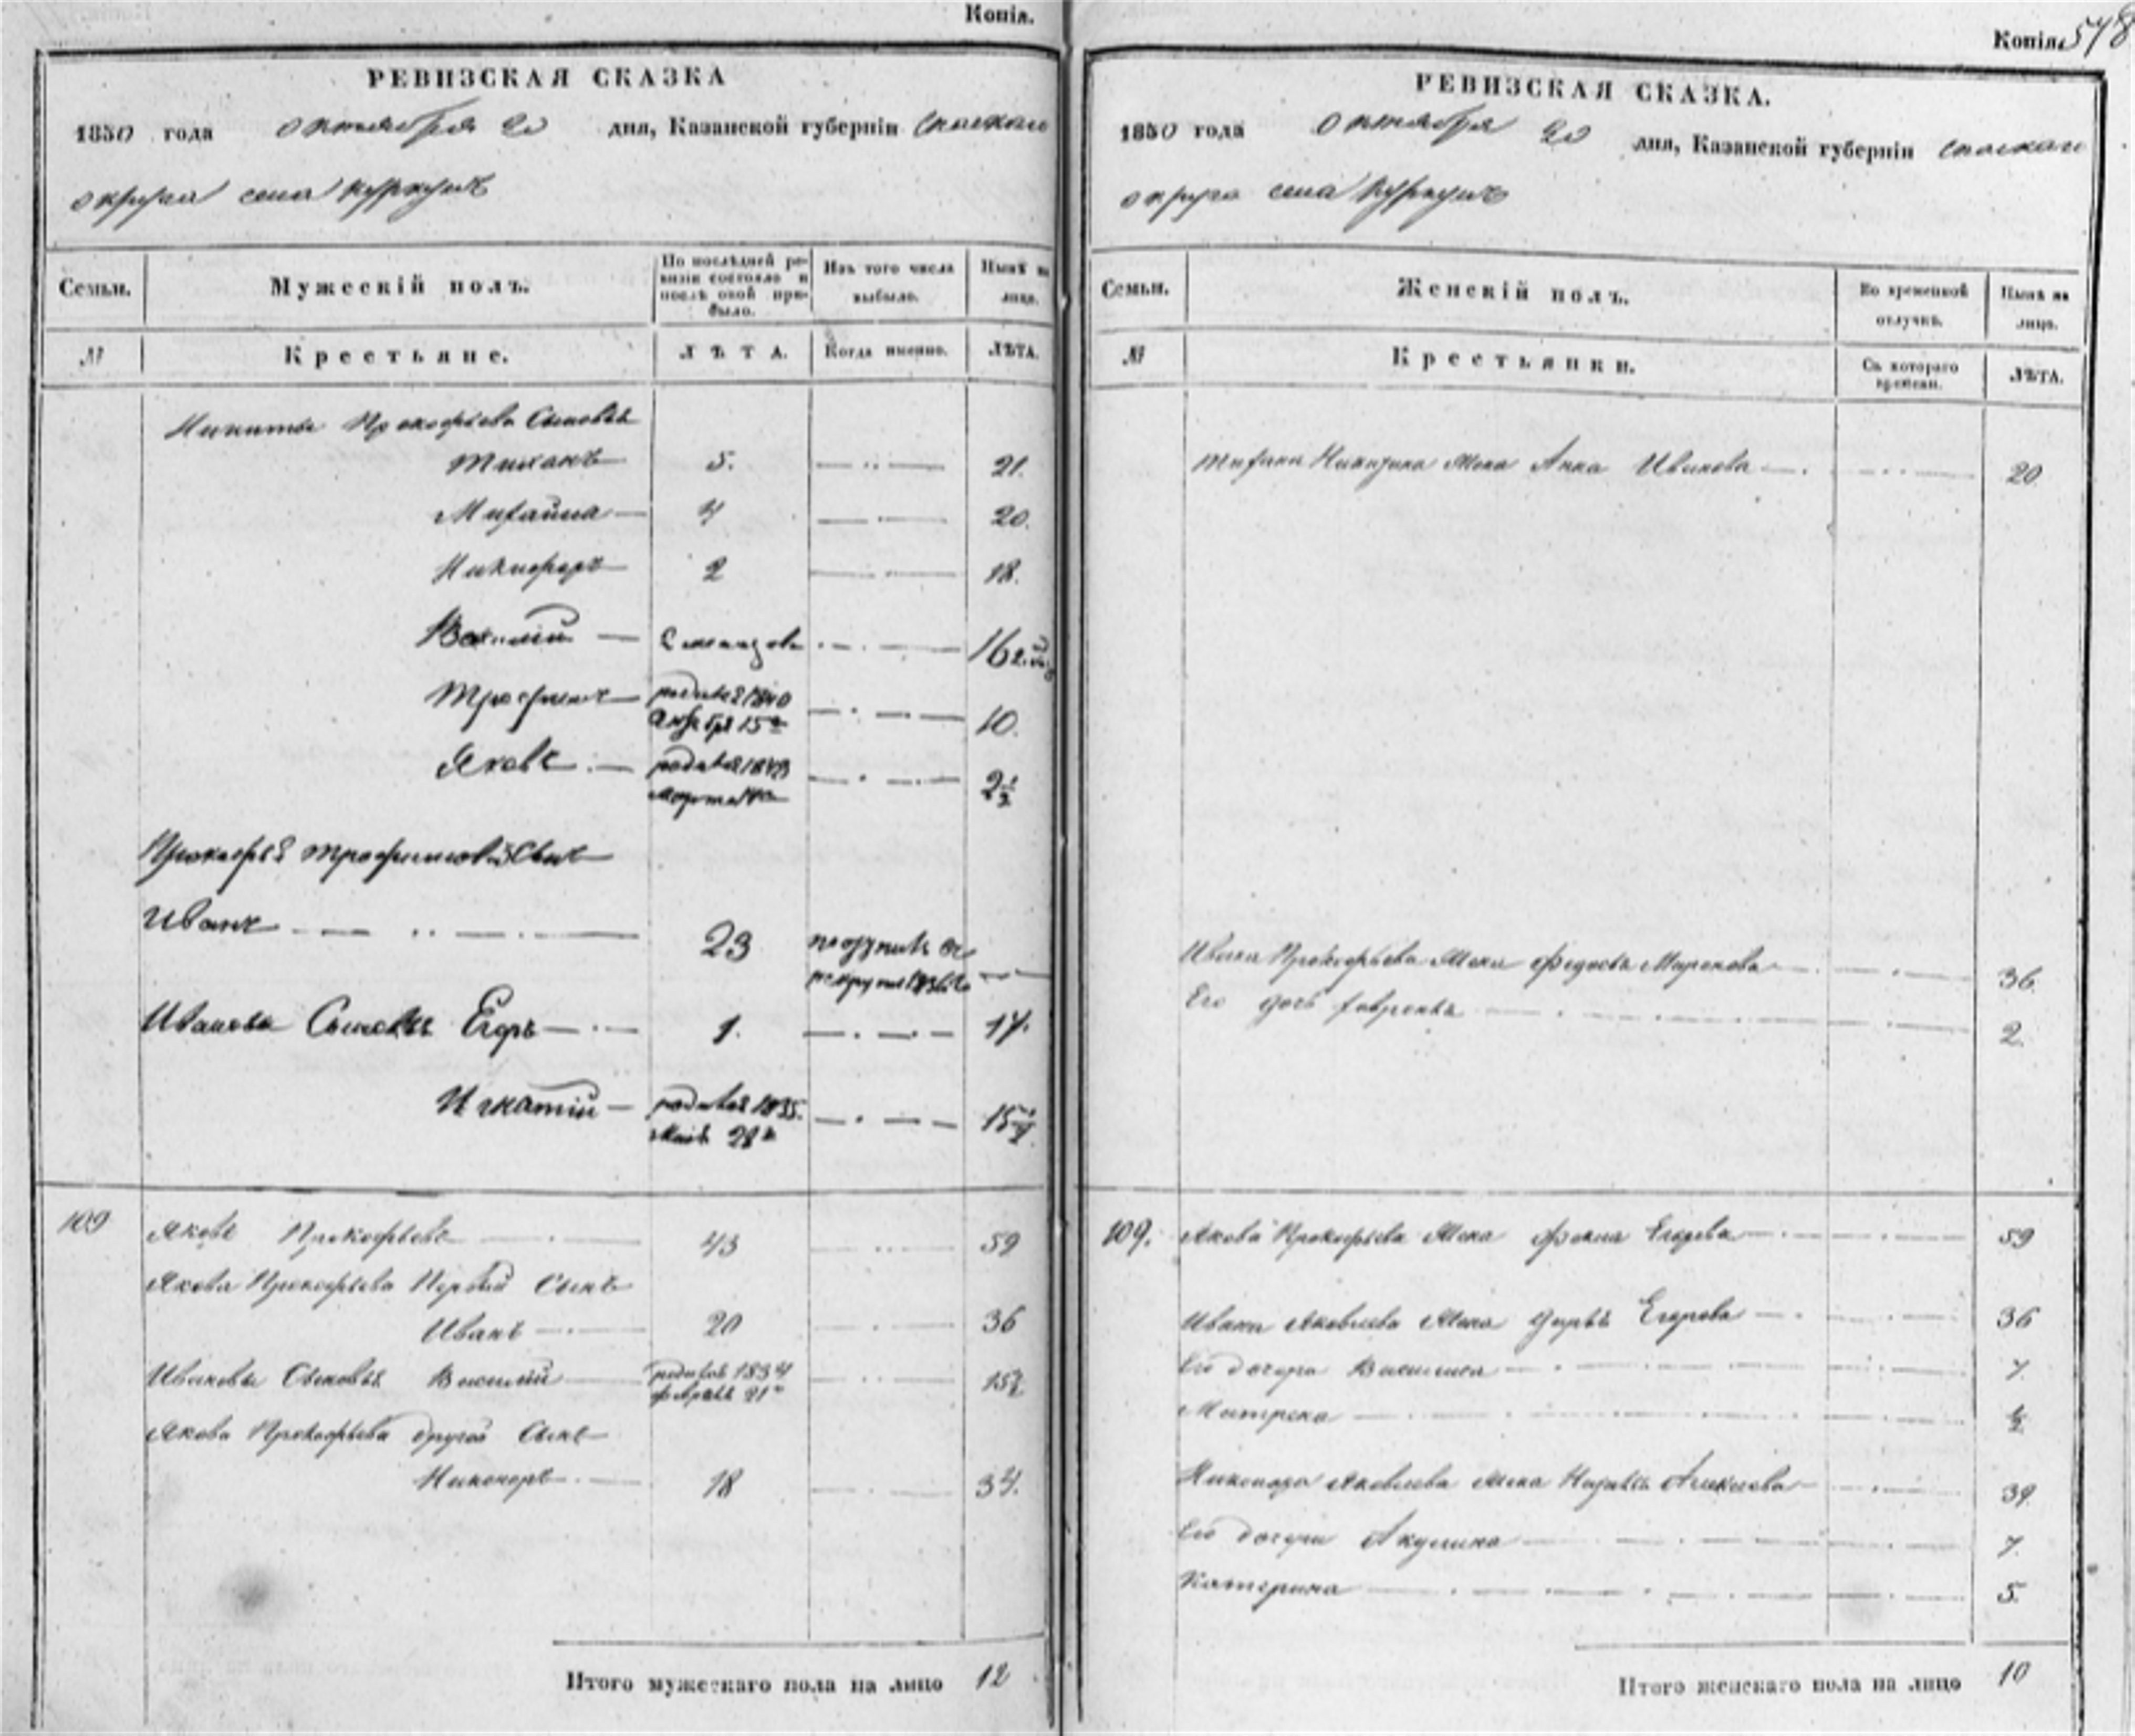 Копія.
РЕВИЗСКАЯ СКАЗКА
1850 года октября 20 дня, Казанской губерніи Спаскаго
округа села
Семьи. Мужескій полъ. По послѣдней ревизіи состояло и послѣ оной прибыло. Изъ того числа выбыло. Нынѣ на лицо.
№ Крестьяне. ЛѢТА. Когда именно. ЛѢТА.
Никиты Прокофьева Сыновья
Тиханъ 5. 21.
Михайла 4 20.
Никифоръ 2 18.
Василій 16
Трофимъ родился 1840 10.
Яковъ родился 1848 2½
марта
Прокофья Трофимова Сынъ
Иванъ 23 поступилъ въ
рекруты
Ивановы Сыновья Егоръ 1. 17.
Игнатій родился 1835. 15
Маія 28
109 Яковъ Прокофьевъ 43 59
Якова Прокофьева Первый Сынъ
Иванъ 20 36
Ивановы Сыновья Василій родился 1834 15½
февраля 21
Якова Прокофьева другой Сынъ
Никоноръ 18 34.
Итого мужескаго пола на лицо 12
Копія. 578
РЕВИЗСКАЯ СКАЗКА.
1850 года Октября 20 дня, Казанской губерніи Спаскаго
округа села
Семьи. Женскій полъ. Во временной отлучкѣ. Нынѣ на лицо.
№ Крестьянки. Съ котораго времени. ЛѢТА.
Тихана Никитина жена Анна Иванова 20
Ивана Прокофьева жена Федосья Маркова 36.
Его дочь 2.
109. Якова Прокофьева жена Фекла Егорова 59
Ивана Яковлева жена Дарья Егорова 36
Его дочери Василиса 7.
Матрена ½
Никонора Яковлева жена Алексѣева 39.
Его дочери Акулина 7.
Катерина 5.
Итого женскаго пола на лицо 10